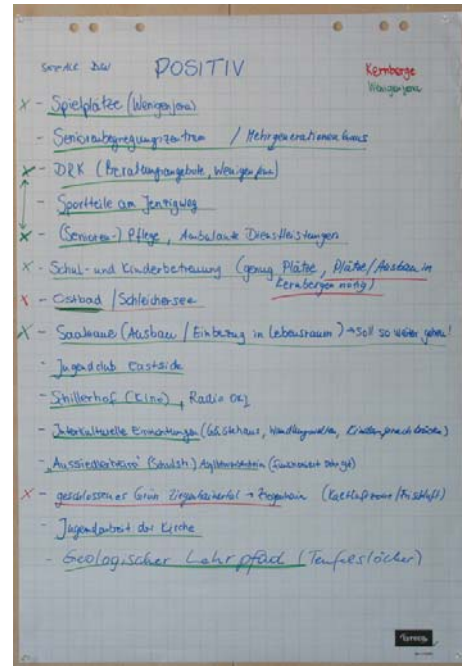 POSITIV
Kernberge
Wenigenjena
- Spielplätze (Wenigenjena)
- Seniorenbegegnungszentrum / Mehrgenerationenhaus
- DRK (Beratungsangebote, Wenigenjena)
- Sportteile am Jenzigweg
- (Senioren-) Pflege, Ambulante Dienstleistungen
- Schul- und Kinderbetreuung (genug Plätze, Plätze/Ausbau in
Kernbergen nötig)
- Ostbad / Schleichersee
- Saaleaue (Ausbau / Einbezug in Lebensraum) → soll so weiter gehen!
- Jugendclub Eastside
- Schillerhof (Kino), Radio OKJ
- Interkulturelle Einrichtungen (Gästehaus,
- "Aussiedlerheim" (Schulstr.)
- geschlossener Grün Ziegenhainertal → Ziegenhain (Kaltluftzone/Frischluft)
- Jugendarbeit der Kirche
- Geologischer Lehrpfad (Teufelslöcher)